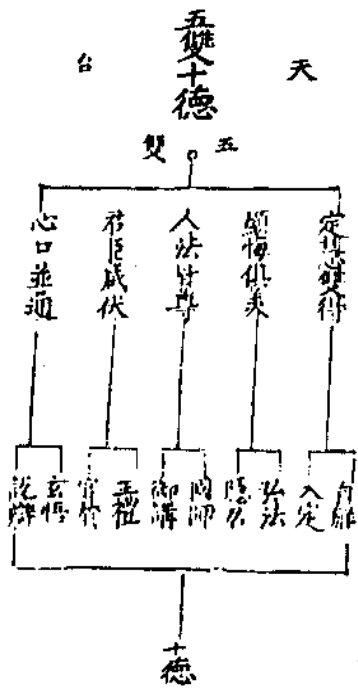 天台
五雙十德
五雙
定慧雙得
顯晦俱美
人法皆尊
君臣咸伏
心口並通
自解
入定
弘法
隱居
國師
御講
玉槌
官竹
玄悟
說辯
十德